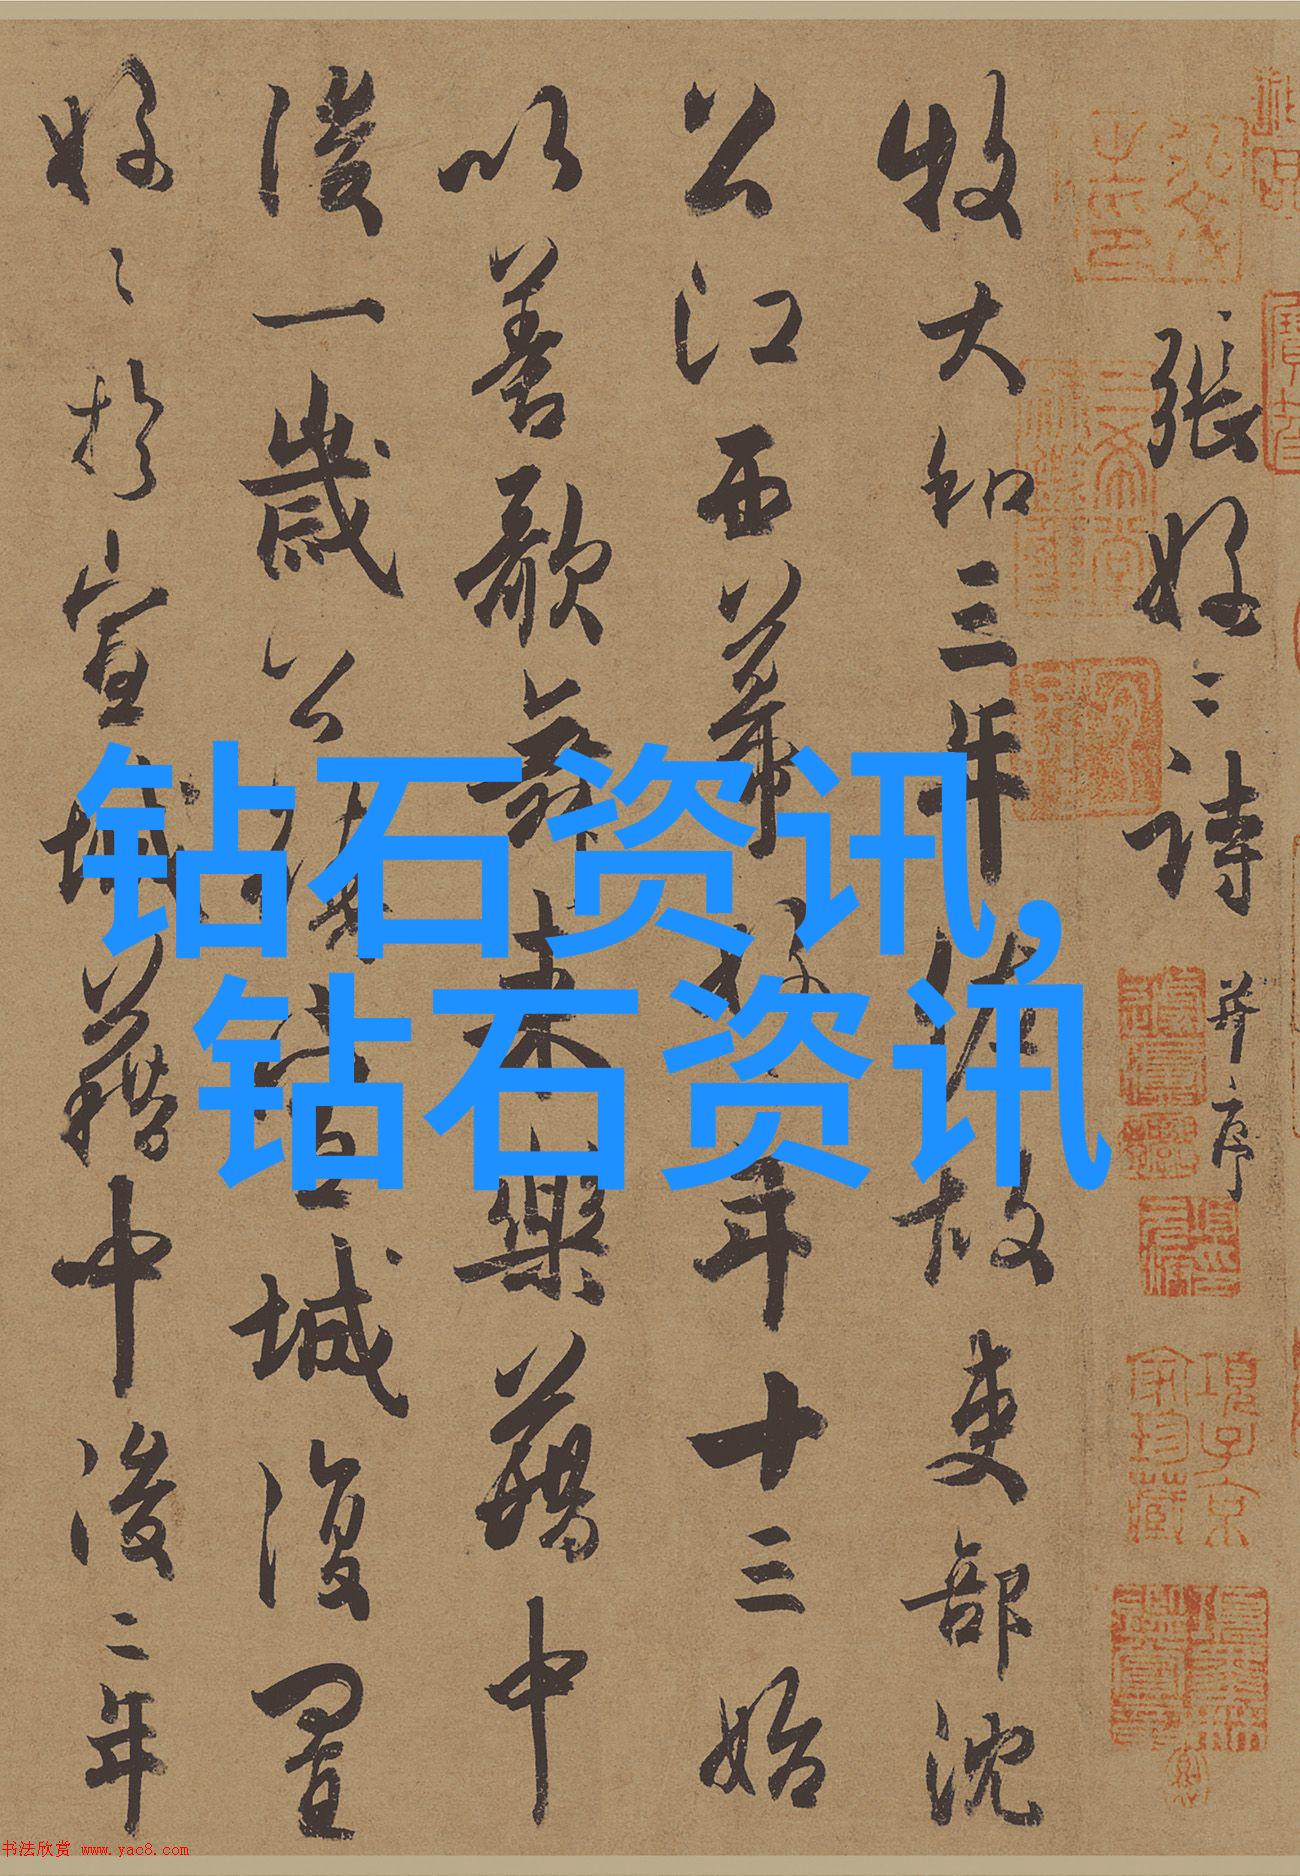 張好〻詩 并序
牧大和三年佐故吏部沈
公江西幕好〻年十三始
以善歌舞来樂籍中
後一歲公鎮宣城復置
好〻於宣城籍中後二年
钻石资讯,
钻石资讯
項子京
家珍藏
书法欣赏 www.yac8.com